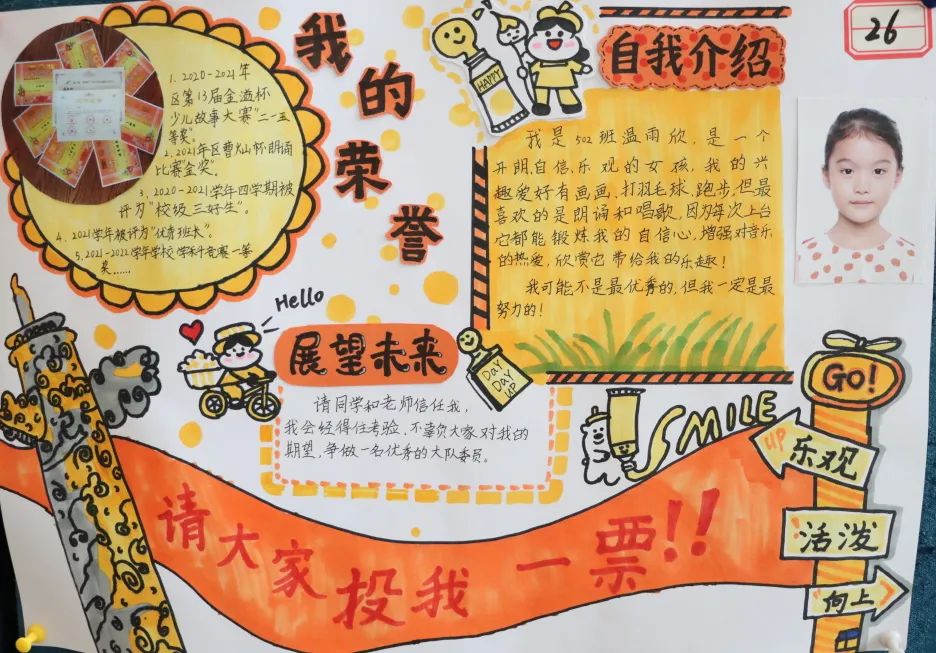 26
我的荣誉
1. 2020-2021年
区第13届金溢杯
少儿故事大赛"二一五
等奖"。
2. 2021年区曹火山杯朗诵
比赛金奖"。
3. 2020-2021学年四学期被
评为"校级三好生"。
4. 2021学年被评为"优秀班长"。
5. 2021-2022学年学校学科竞赛一等
奖……
HAPPY
自我介绍
我是502班温雨欣,是一个
开朗自信,乐观的女孩,我的兴
趣爱好有画画、打羽毛球、跑步,但最
喜欢的是朗诵和唱歌,因为每次上台
它都能锻炼我的自信心,增强对音乐
的热爱,欣赏它带给我的乐趣!
我可能不是最优秀的,但我一定是最
努力的!
Hello
展望未来
请同学和老师信任我,
我会经得住考验,不辜负大家对我的
期望,争做一名优秀的大队委员。
DAY
DAY
UP
SMILE
GO!
UP
乐观
活泼
向上
请大家投我一票!!